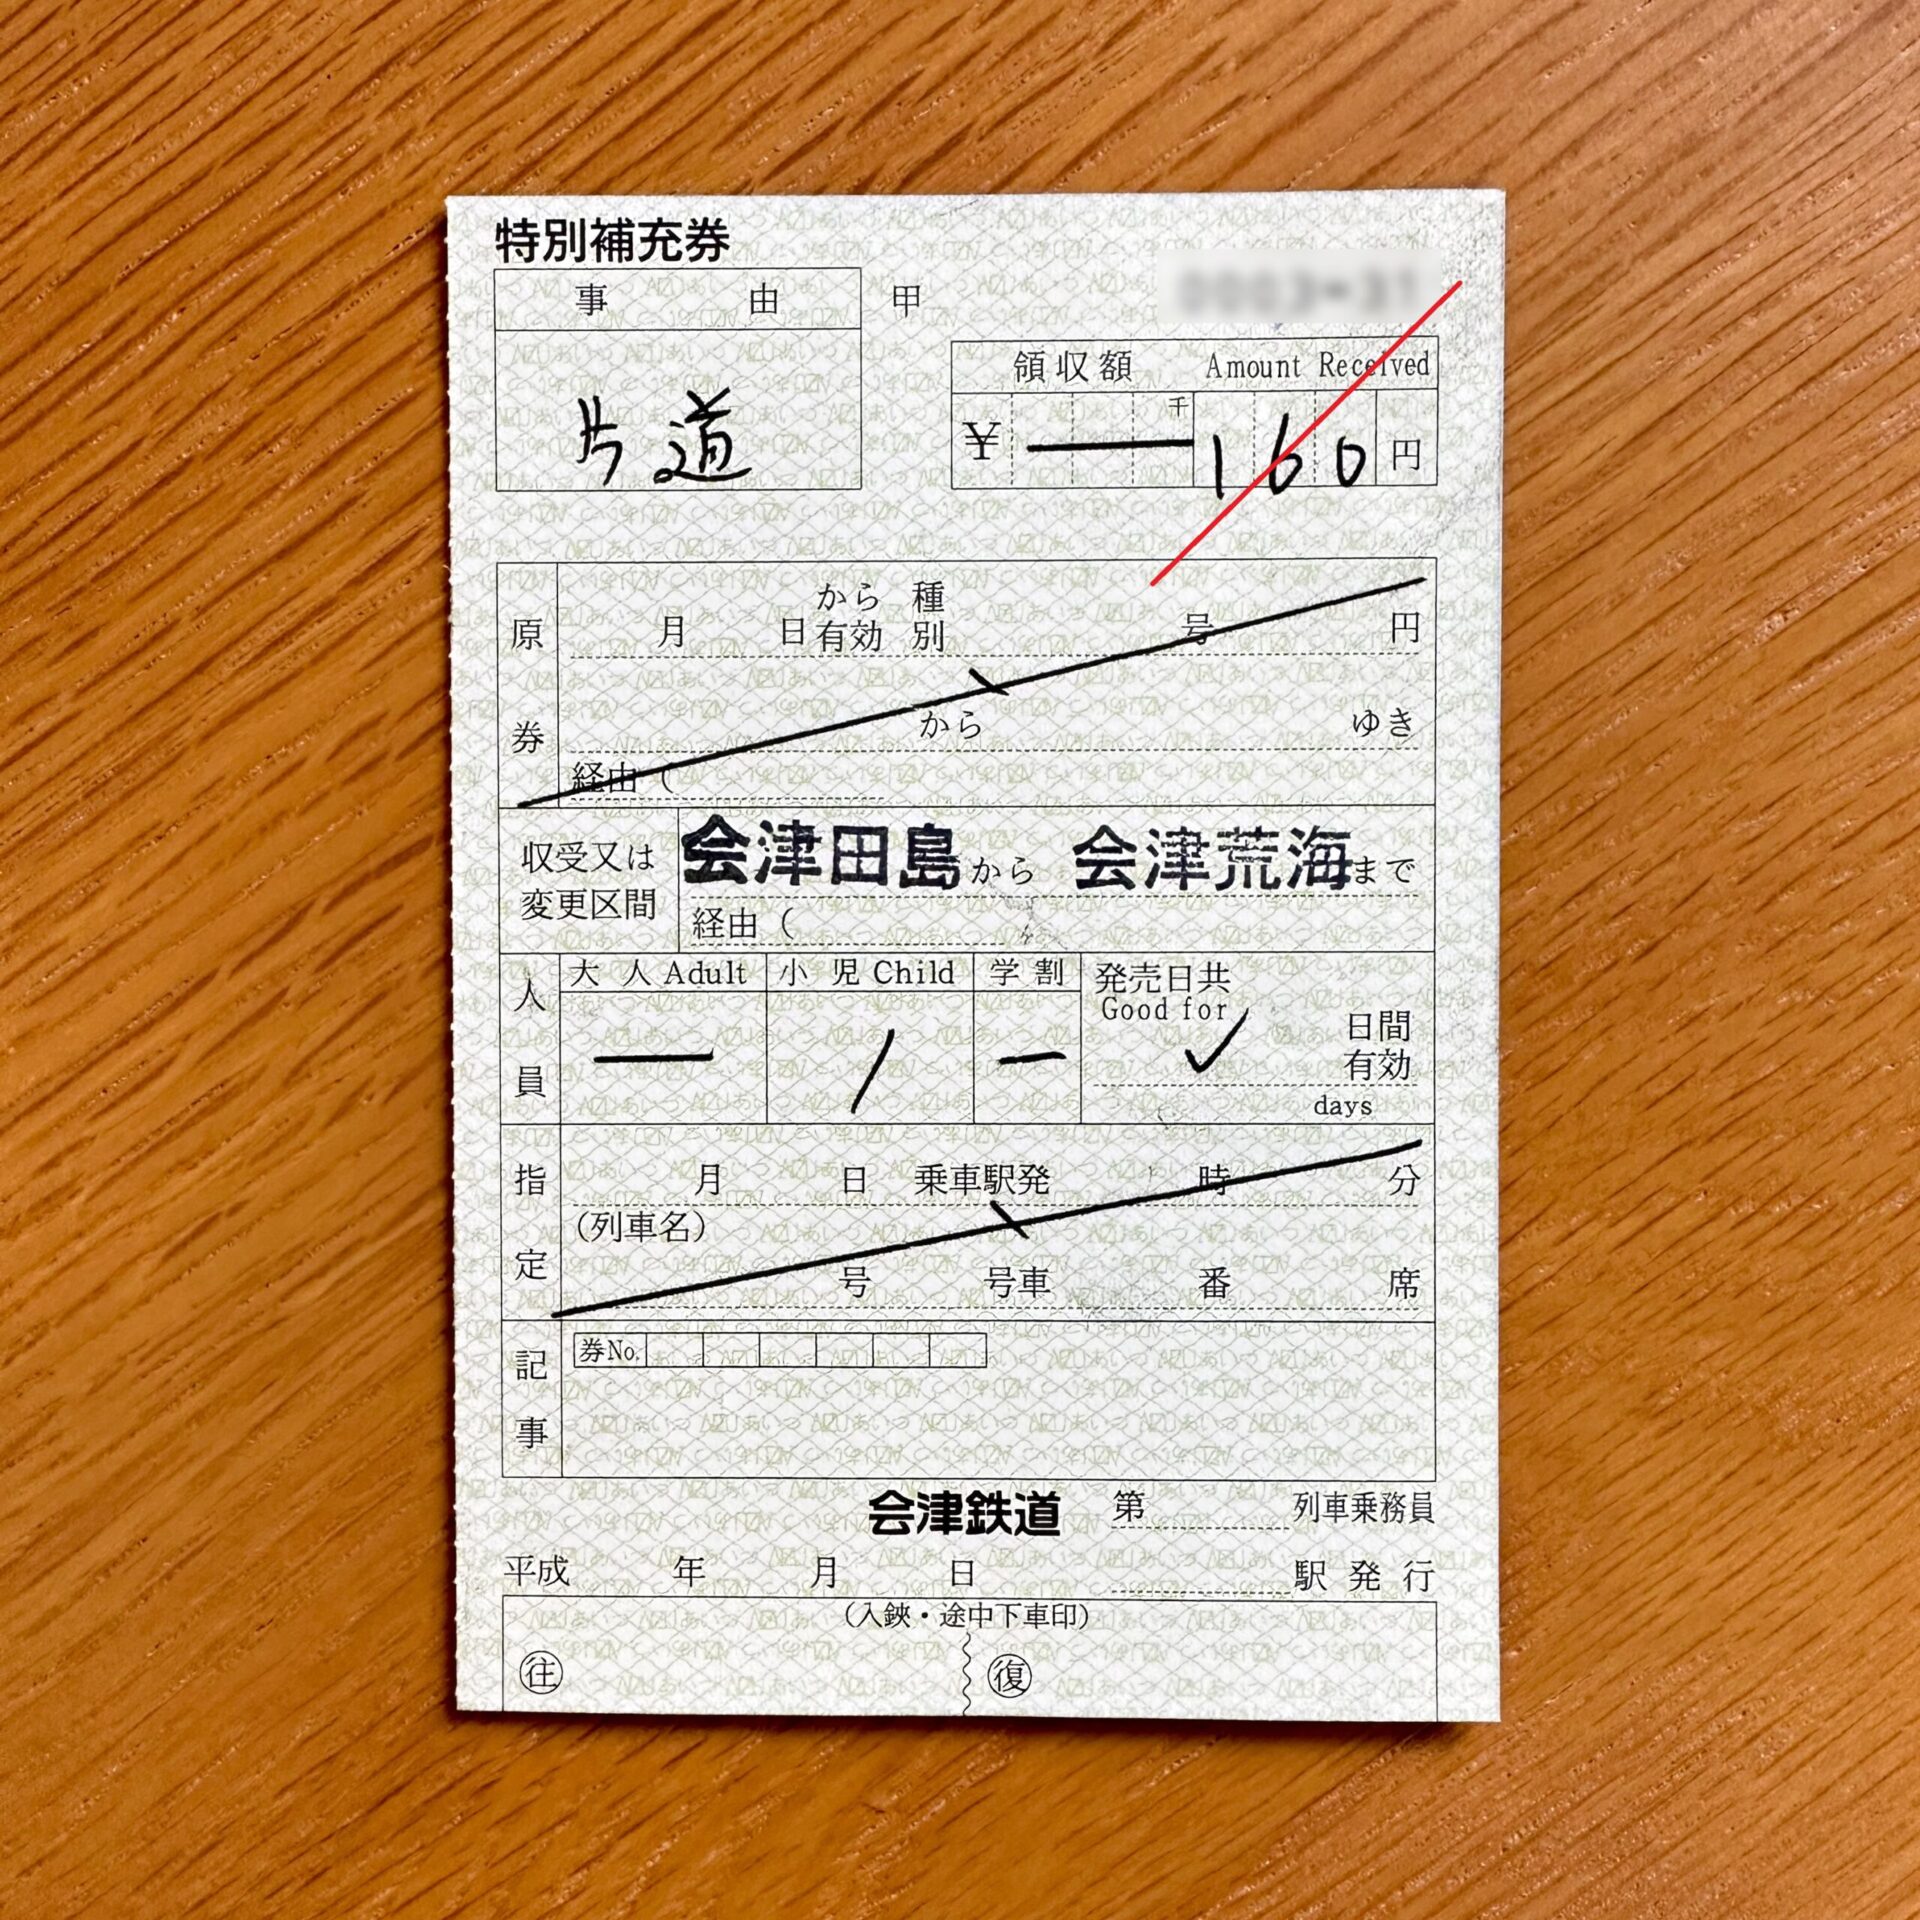 特別補充券
事由 甲
片道
領収額 Amount Received
千
¥ 160 円
原券
月 日から有効 種別 号 円
から ゆき
経由(
収受又は変更区間
会津田島から 会津荒海まで
経由(
人員
大人 Adult 小児 Child 学割 発売日共
Good for
― 1 ― ✓ 日間有効
days
指定
月 日 乗車駅発 時 分
(列車名)
号 号車 番 席
記事
券No.
会津鉄道 第 列車乗務員
平成 年 月 日 駅発行
(入鋏・途中下車印)
往 復